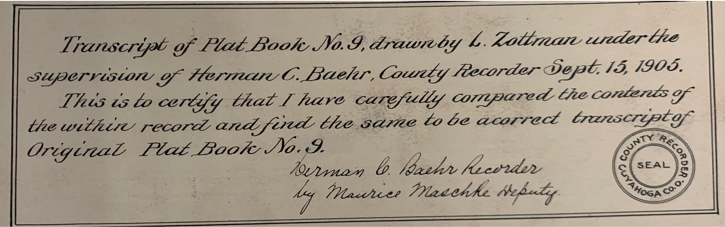 Transcript of Plat Book No. 9, drawn by L. Zottman under the
supervision of Herman C. Baehr, County Recorder Sept. 15, 1905.
This is to certify that I have carefully compared the contents of
the within record and find the same to be a correct transcript of
Original Plat Book No. 9.
Herman C. Baehr Recorder
by Maurice Maschke Deputy
COUNTY RECORDER
SEAL
CUYAHOGA CO. O.